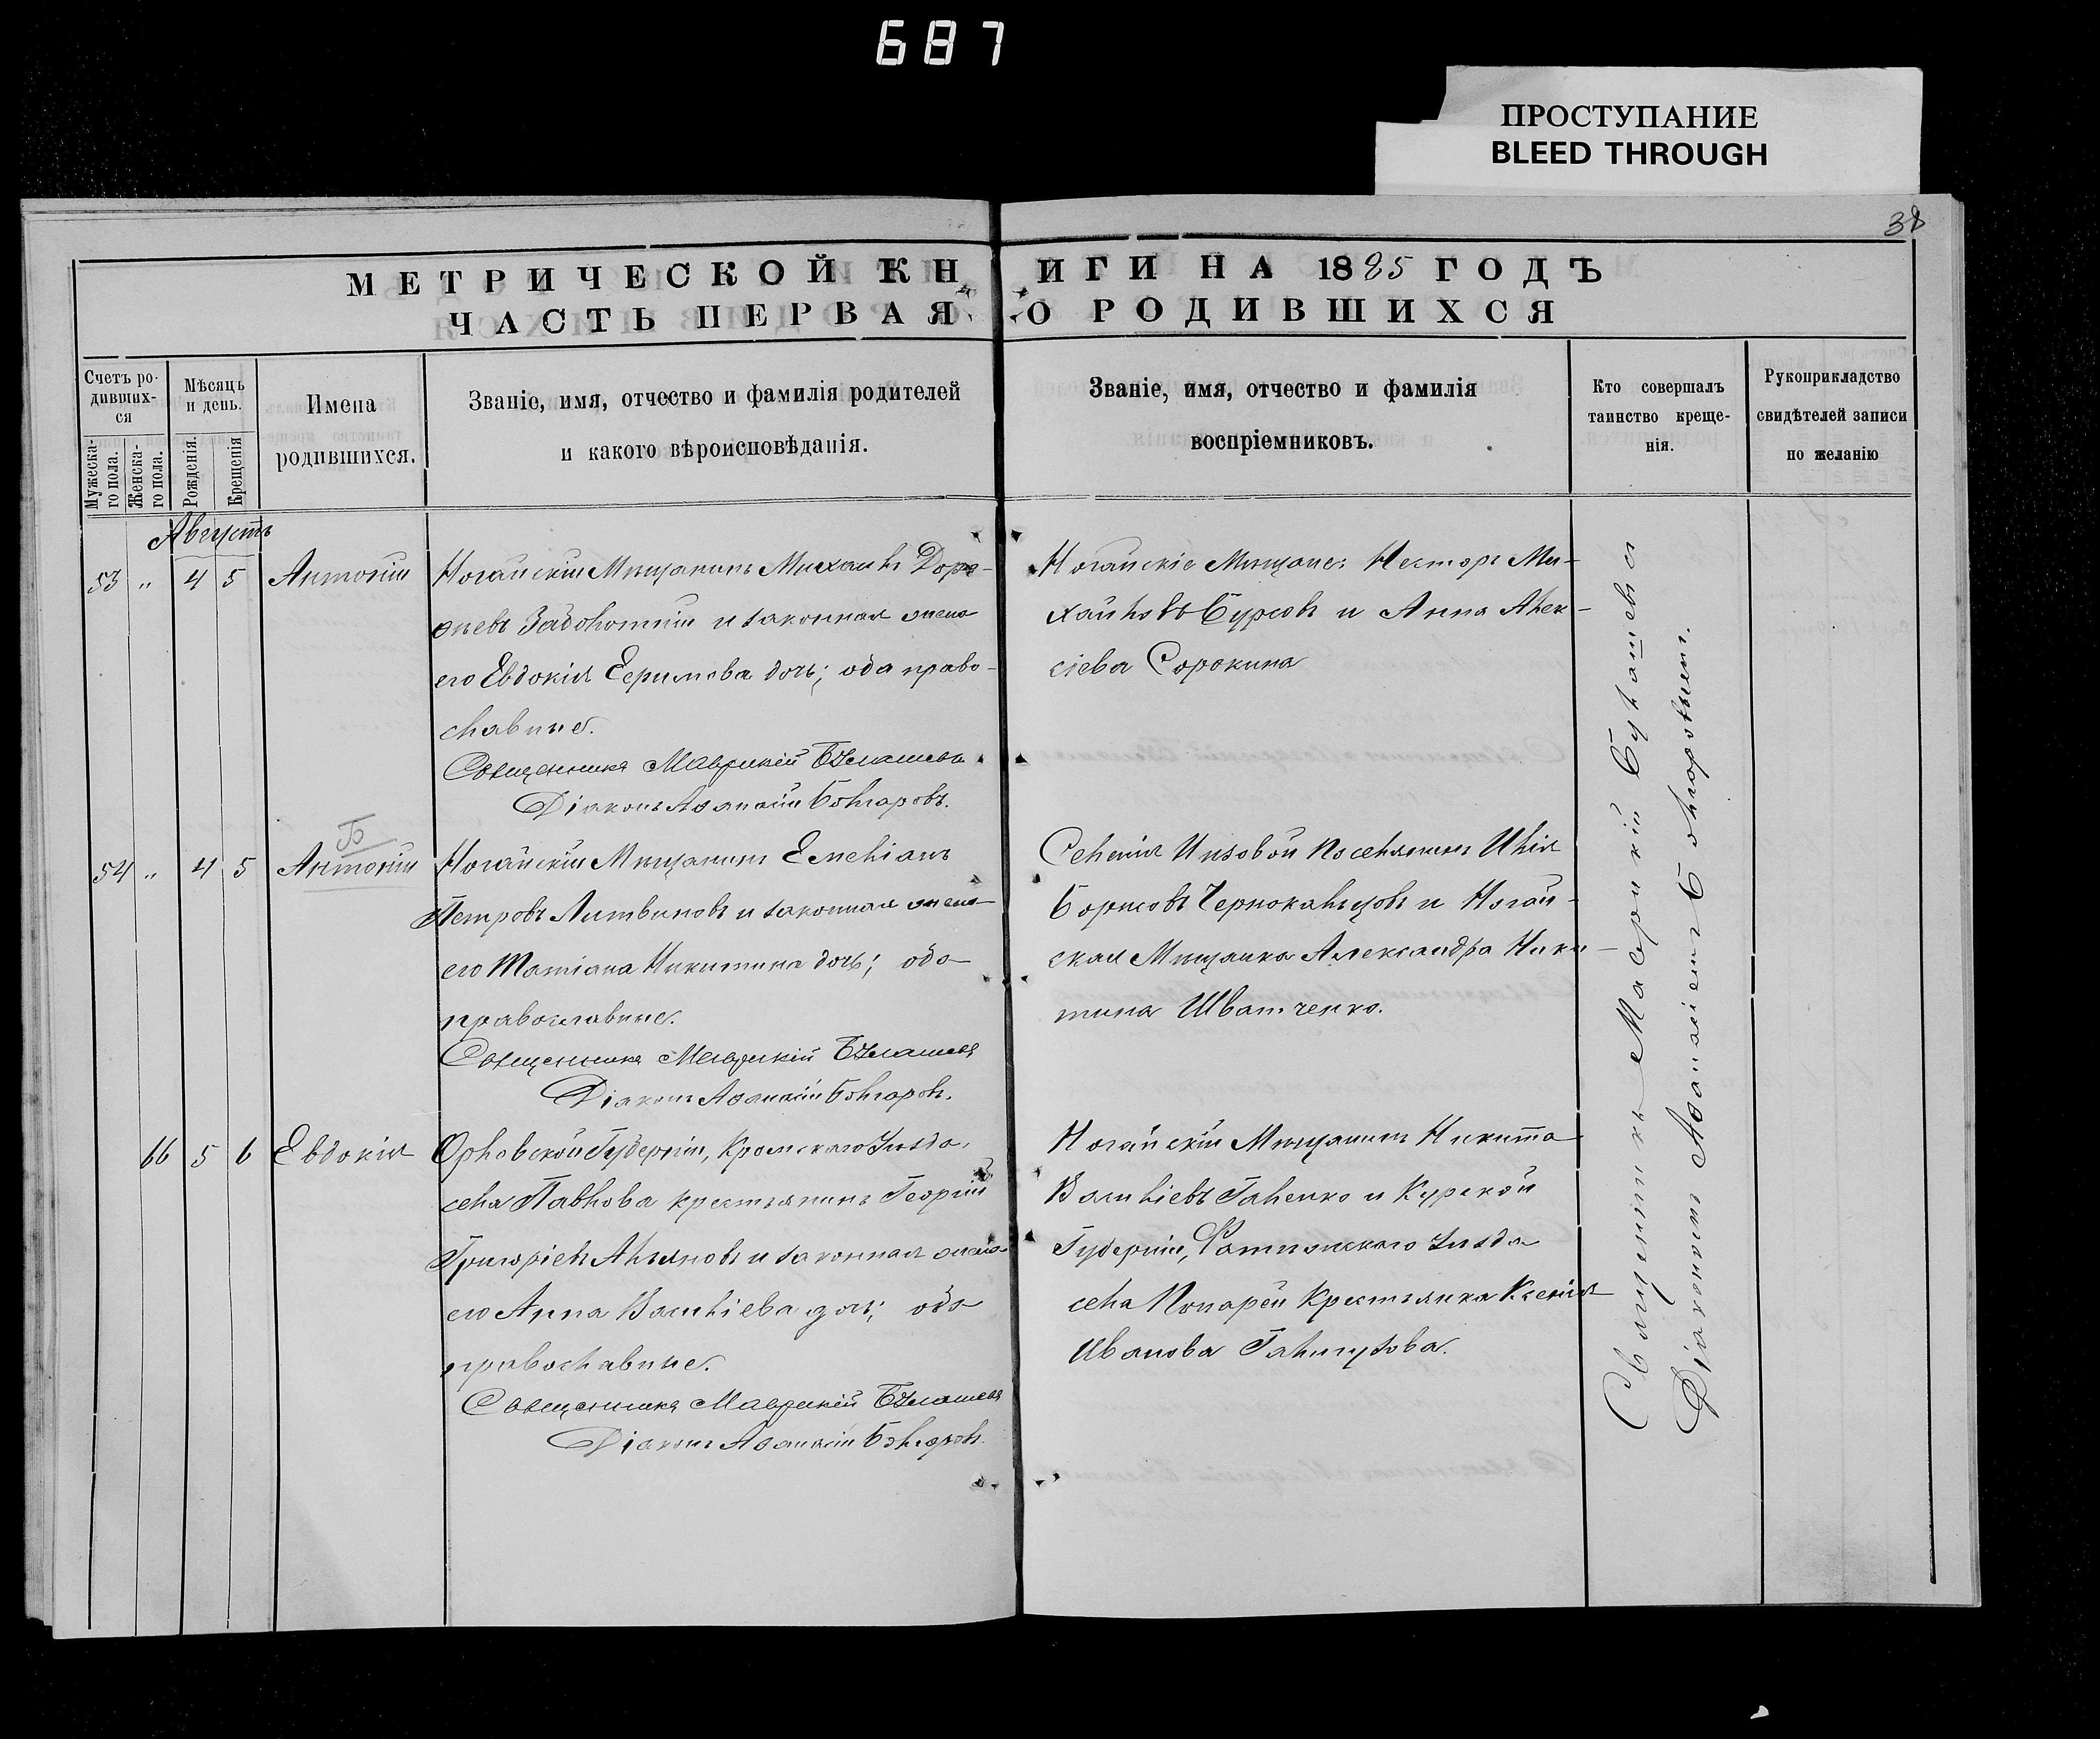 687
ПРОСТУПАНИЕ
BLEED THROUGH
38
МЕТРИЧЕСКОЙ КНИГИ НА 1885 ГОДЪ
ЧАСТЬ ПЕРВАЯ О РОДИВШИХСЯ
Счетъ родившихся
Мужеска-
го пола.
Женска-
го пола.
Мѣсяць
и день.
Рожденія.
Крещенія
Имена
родившихся.
Званіе, имя, отчество и фамилія родителей
и какого вѣроисповѣданія.
Званіе, имя, отчество и фамилія
воспріемниковъ.
Кто совершалъ
таинство креще-
нія.
Рукоприкладство
свидѣтелей записи
по желанію
Августъ
53 „ 4 5 Антоній
Ногайскій Мѣщанинъ Михаилъ Доро-
ѳеевъ и законная жена
его Евдокія дочь; оба право-
славные.
Священникъ Маврикій Булашевъ
Діаконъ Аѳанасій Болгаровъ.
Ногайскіе Мѣщане: Несторъ Ми-
хайловъ и Анна Алек-
сіева Сорокина
54 „ 4 5 Антоній
Ногайскій Мѣщанинъ Емеліанъ
Петровъ Литвиновъ и законная жена
его Татіана Никитина дочь; оба
православные.
Священникъ Маврикій Булашевъ
Діаконъ Аѳанасій Болгаровъ.
Селенія Поселянинъ Илія
Борисовъ и Ногай-
ская Мѣщанка Александра Ники-
тина Шватченко.
66 5 6 Евдокія
Орловской Губерніи, Кромскаго Уѣзда,
села Павлова крестьянинъ Георгій
Григоріевъ и законная жена
его Анна Василіева дочь; оба
православные.
Священникъ Маврикій Булашевъ
Діаконъ Аѳанасій Болгаровъ.
Ногайскій Мѣщанинъ Никита
Василіевъ Галенко и Курской
Губерніи, Уѣзда
села крестьянка Ксенія
Иванова
Священникъ Маврикій Булашевъ съ
Діакономъ Аѳанасіемъ Болгаровымъ.